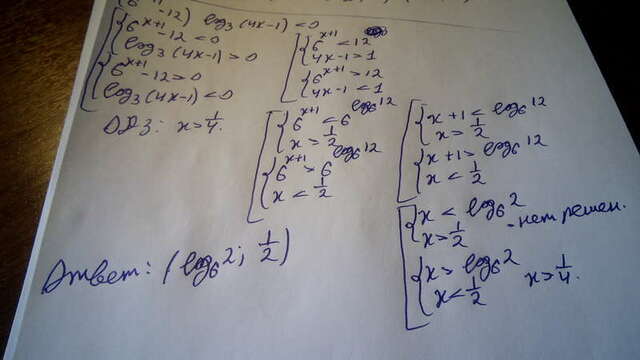 6^(x+1) -12) log₃(4x-1)<0
[{6^(x+1) -12<0
log₃(4x-1)>0
{6^(x+1) -12>0
log₃(4x-1)<0
ОДЗ: x>1/4.
[{6^(x+1) <12
4x-1>1
{6^(x+1) >12
4x-1<1
[{6^(x+1) <6^(log₆12)
x>1/2
{6^(x+1) >6^(log₆12)
x<1/2
[{x+1<log₆12
x>1/2
{x+1>log₆12
x<1/2
[{x<log₆2
x>1/2 -нет решен.
{x>log₆2
x<1/2 x>1/4.
Ответ: (log₆2; 1/2)